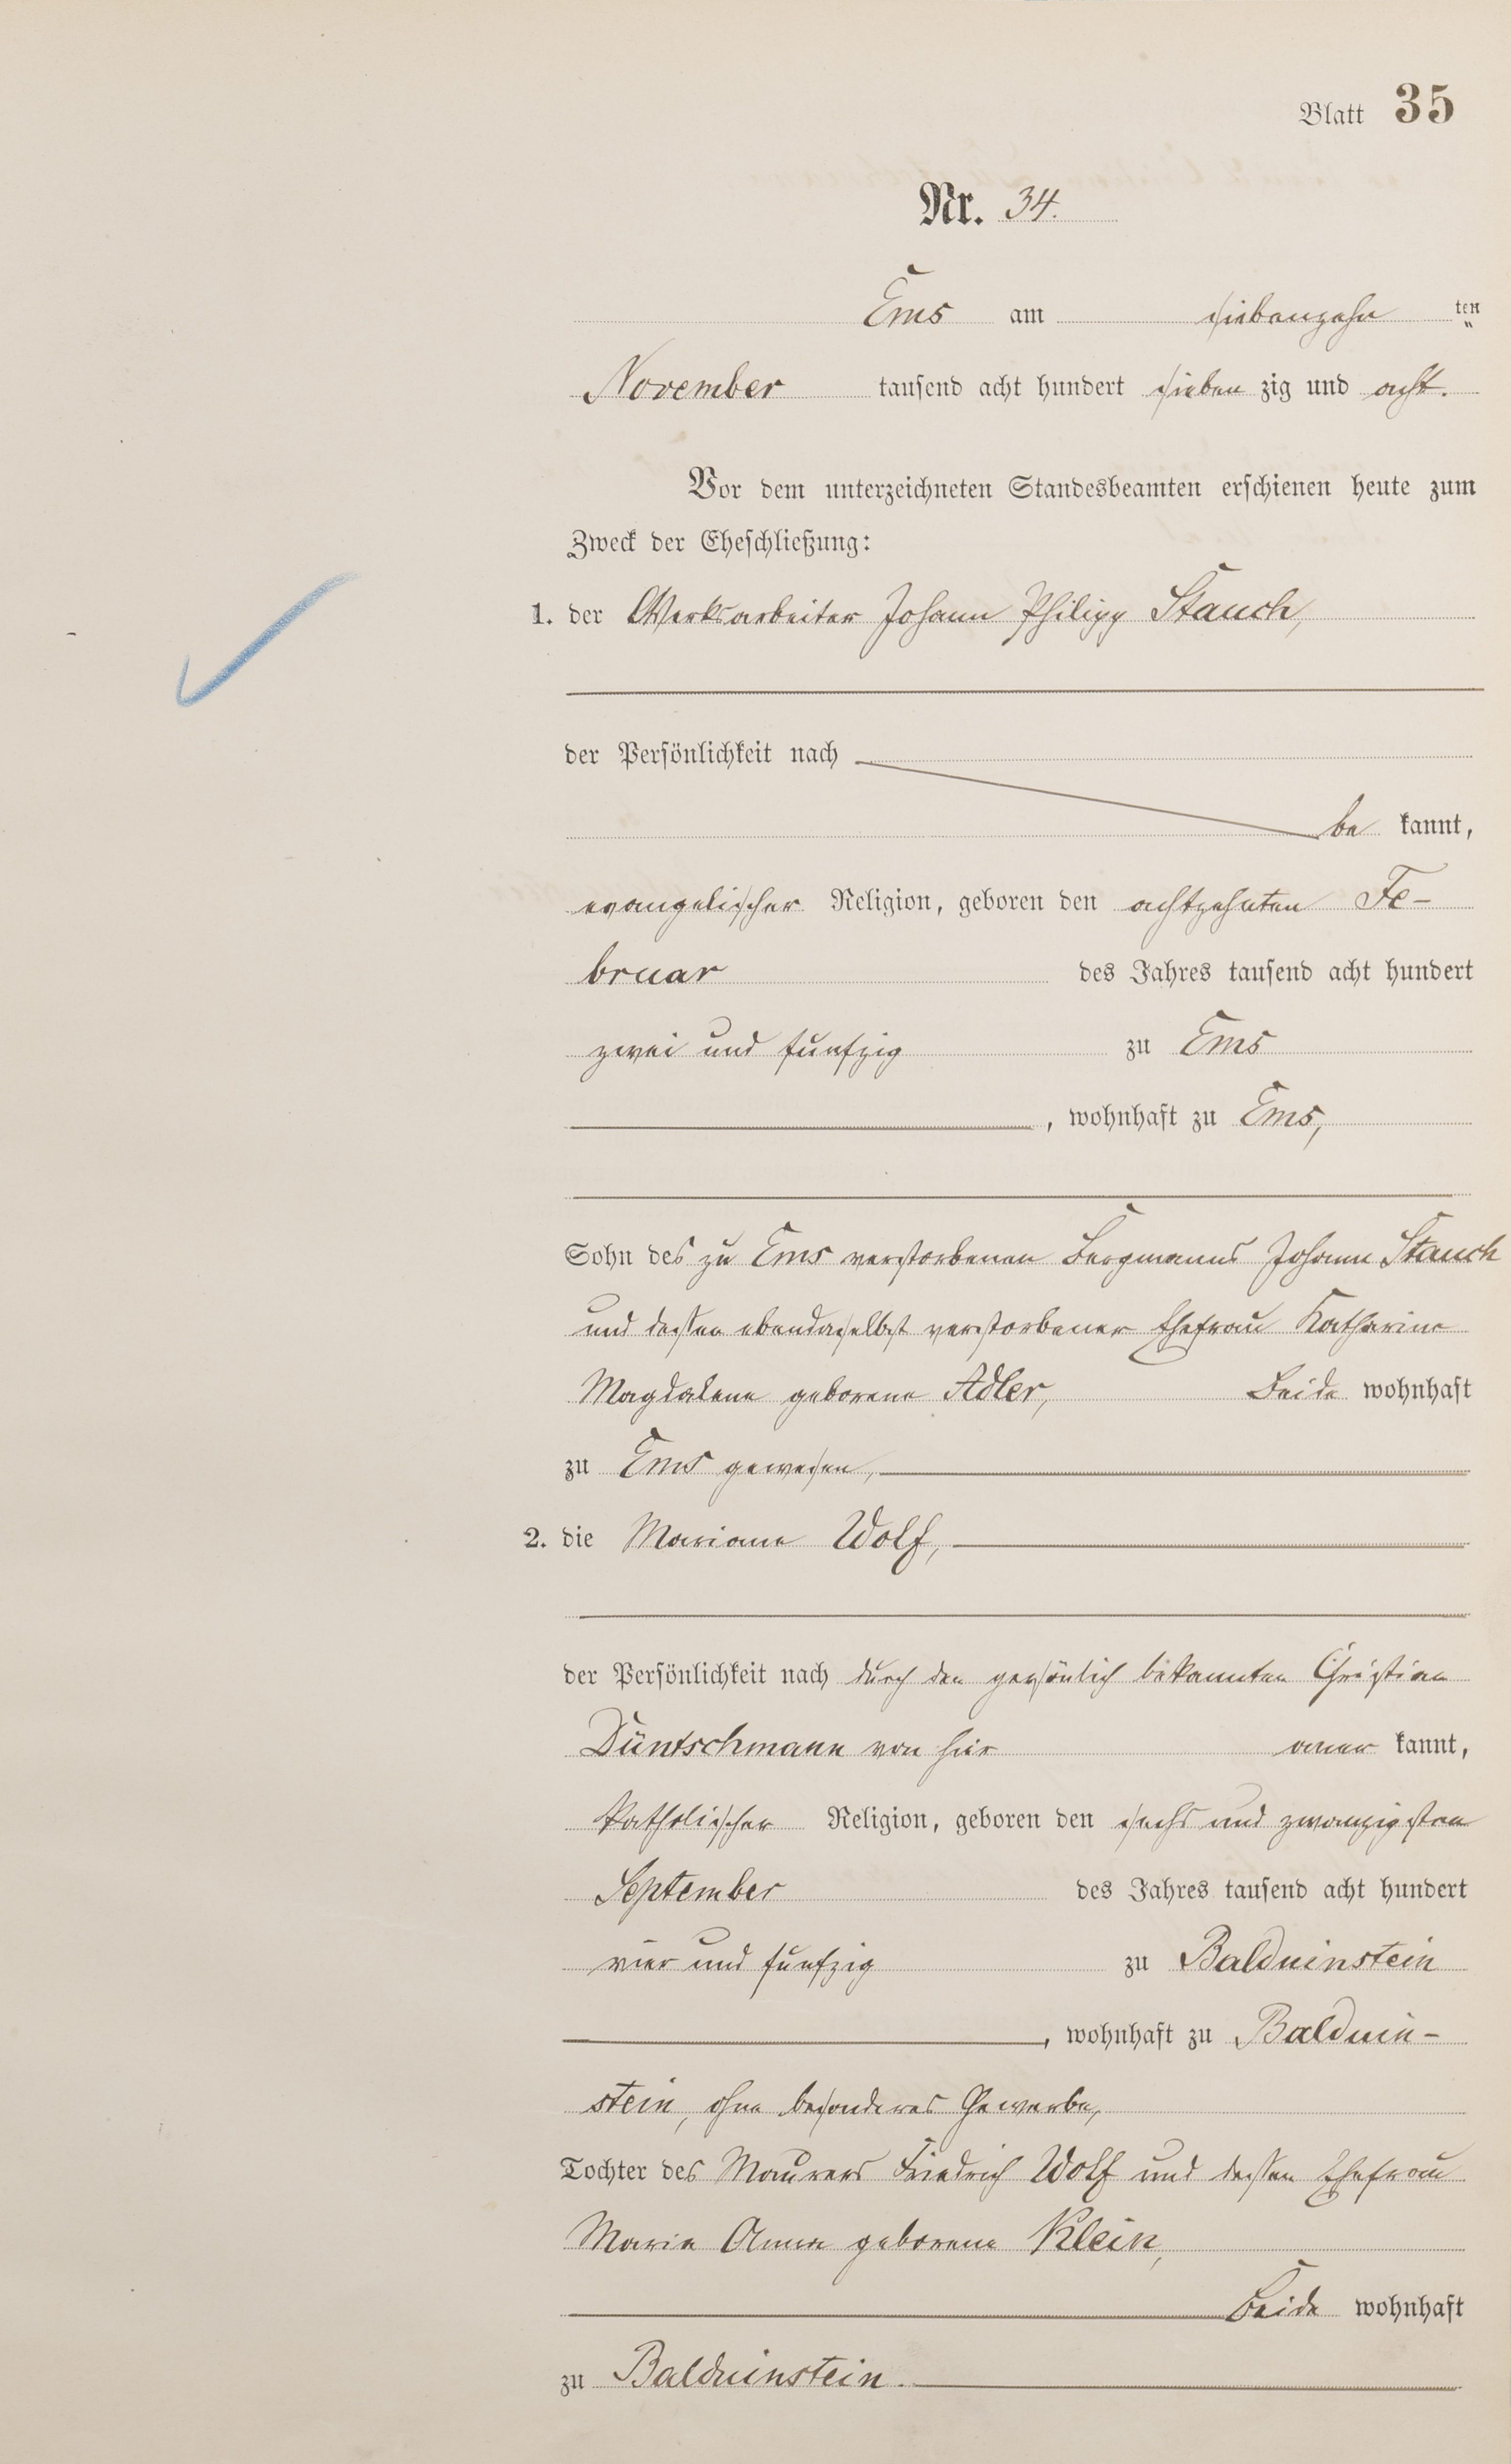 Blatt 35
Nr. 34.
Ems am siebenzehn ten
November tausend acht hundert sieben zig und acht.
Vor dem unterzeichneten Standesbeamten erschienen heute zum
Zweck der Eheschließung:
1. der Werksarbeiter Johann Philipp Stauch,
der Persönlichkeit nach
be kannt,
evangelischer Religion, geboren den achtzehnten Fe-
bruar des Jahres tausend acht hundert
zwei und fünfzig zu Ems
, wohnhaft zu Ems,
Sohn des zu Ems verstorbenen Bergmanns Johann Stauch
und dessen ebendaselbst verstorbener Ehefrau Katharine
Magdalene geborene Adler, Beide wohnhaft
zu Ems gewesen,
2. die Mariane Wolf,
der Persönlichkeit nach durch den persönlich bekannten Christian
Düntschmann von hier aner kannt,
katholischer Religion, geboren den sechs und zwanzigsten
September des Jahres tausend acht hundert
vier und fünfzig zu Balduinstein
, wohnhaft zu Balduin-
stein, ohne besonderes Gewerbe,
Tochter des Maurers Friedrich Wolf und dessen Ehefrau
Maria Anna geborene Klein,
Beide wohnhaft
zu Balduinstein.